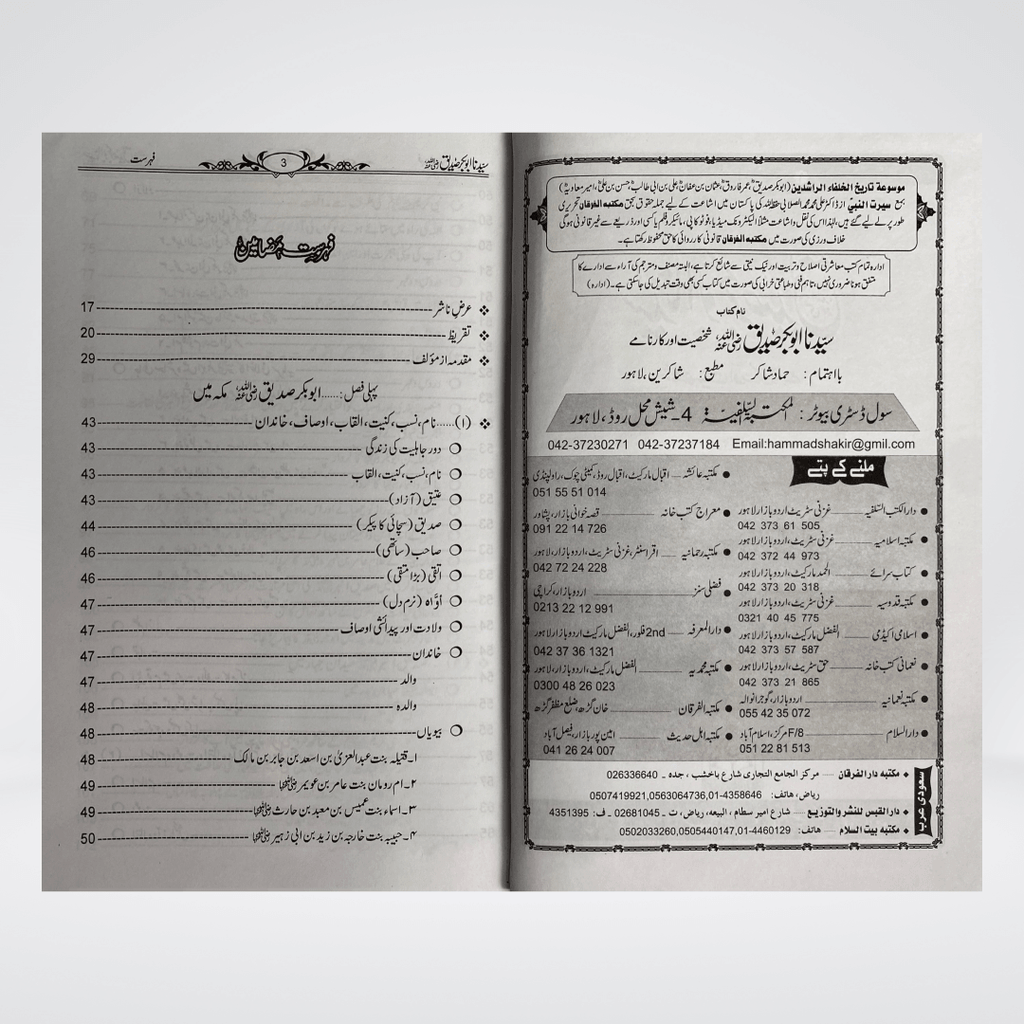 موسوعة تاريخ الخلفاء الراشدين (ابوبکر صدیق، عمر فاروق، عثمان بن عفان، علی بن ابی طالب، حسن بن علی، امیر معاویہ)
بمع سیرت النبی از ڈاکٹر علی محمد محمد الصلابی حفظہ اللہ کی پاکستان میں اشاعت کے لیے جملہ حقوق بحق مکتبہ الفرقان تحریری
طور پر لے لیے گئے ہیں، لہٰذا اس کی نقل و اشاعت مثلاً الیکٹرونک میڈیا، فوٹو کاپی، مائیکرو فلم یا کسی اور ذریعے سے غیر قانونی ہوگی
خلاف ورزی کی صورت میں مکتبہ الفرقان قانونی کارروائی کا حق محفوظ رکھتا ہے۔
ادارہ تمام کتب معاشرتی اصلاح و تربیت اور نیک نیتی سے شائع کرتا ہے، البتہ مصنف و مترجم کی آراء سے ادارے کا
متفق ہونا ضروری نہیں، تاہم فنی و طباعتی خرابی کی صورت میں کتاب کسی بھی وقت تبدیل کی جا سکتی ہے۔ (ادارہ)
نام کتاب
سیدنا ابوبکر صدیق رضی اللہ عنہ شخصیت اور کارنامے
بااہتمام: حماد شاکر مطبع: شاکرین، لاہور
سول ڈسٹری بیوٹر: المکتبۃ السلفیۃ 4۔شیش محل روڈ، لاہور
042-37230271 042-37237184 Email:hammadshakir@gmil.com
ملنے کے پتے
دارالکتب السلفیہ غزنی سٹریٹ، اردو بازار لاہور
042 373 61 505
مکتبہ اسلامیہ غزنی سٹریٹ، اردو بازار لاہور
042 372 44 973
کتاب سرائے الحمد مارکیٹ، اردو بازار لاہور
042 373 20 318
مکتبہ قدوسیہ غزنی سٹریٹ، اردو بازار لاہور
0321 40 45 775
اسلامی اکیڈمی الفضل مارکیٹ، اردو بازار لاہور
042 373 57 587
نعمانی کتب خانہ حق سٹریٹ، اردو بازار لاہور
042 373 21 865
مکتبہ نعمانیہ اردو بازار، گوجرانوالہ
055 42 35 072
دارالسلام F/8 مرکز، اسلام آباد
051 22 81 513
مکتبہ عائشہ اقبال مارکیٹ، اقبال روڈ، کمیٹی چوک، راولپنڈی
051 55 51 014
معراج کتب خانہ قصہ خوانی بازار، پشاور
091 22 14 726
مکتبہ رحمانیہ اقرا سنٹر، غزنی سٹریٹ، اردو بازار، لاہور
042 72 24 228
فضلی سنز اردو بازار، کراچی
0213 22 12 991
دارالمعرفہ 2nd فلور، الفضل مارکیٹ اردو بازار لاہور
042 37 36 1321
مکتبہ محمدیہ الفضل مارکیٹ، اردو بازار، لاہور
0300 48 26 023
مکتبہ الفرقان خان گڑھ، ضلع مظفر گڑھ
مکتبہ اہل حدیث امین پور بازار، فیصل آباد
041 26 24 007
سعودی عرب
مکتبہ دار الفرقان مركز الجامع التجاری شارع باخشب، جدہ ۔ 026336640
ریاض، ہاتف: 0507419921,0563064736,01-4358646
دار القبس للنشر والتوزیع شارع امیر سطام، البیعہ، ریاض، ت ۔ 02681045 ۔ ف: 4351395
مکتبہ بیت السلام ہاتف: 0502033260,0505440147,01-4460129
سیدنا ابوبکر صدیق رضی اللہ عنہ 3 فہرست
فہرست مضامین
عرضِ ناشر 17
تقریظ 20
مقدمہ از مؤلف 29
پہلی فصل:......ابوبکر صدیق رضی اللہ عنہ مکہ میں
(۱)......نام، نسب، کنیت، القاب، اوصاف، خاندان 43
دور جاہلیت کی زندگی 43
نام، نسب، کنیت، القاب 43
عتیق (آزاد) 43
صدیق (سچائی کا پیکر) 44
صاحب (ساتھی) 46
اتقی (بڑا متقی) 46
اوّاہ (نرم دل) 47
ولادت اور پیدائشی اوصاف 47
خاندان 47
والد 47
والدہ 48
بیویاں 48
۱۔قتیلہ بنت عبدالعزیٰ بن اسعد بن جابر بن مالک 48
۲۔ام رومان بنت عامر بن عویمر رضی اللہ عنہا 49
۳۔ اسماء بنت عمیس بن معبد بن حارث رضی اللہ عنہا 49
۴۔ حبیبہ بنت خارجہ بن زید بن ابی زہیر رضی اللہ عنہا 50